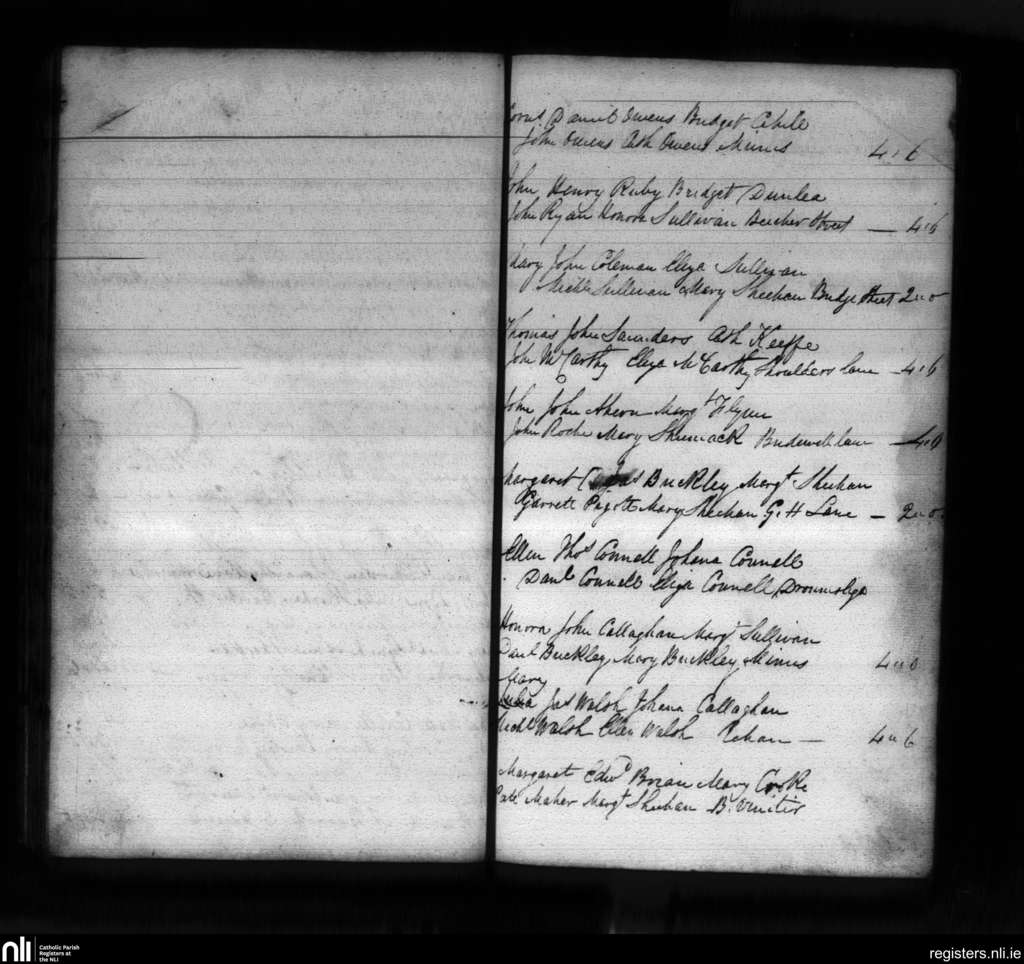 Corns Daniel Owens Bridget Cahile
John Owens Cath Owens Minus 4 " 6
John Henry Ruby Bridget Dunlea
John Ryan Honora Sullivan Beecher Street — 4 " 6
Mary John Coleman Eliza Sullivan
Michl Sullivan Mary Sheehan Bridge Street 2 " 0
Thomas John Saunders Cath Keeffe
John McCarthy Eliza McCarthy Shoulders lane — 4 " 6
John John Ahern Margt Flynn
John Roche Mary Bridewell lane —
Margaret Buckley Margt Sheehan
Garrett Pigott Mary Sheehan G. H Lane — 2 " 0
Ellen Thos Connell Johana Connell
Danl Connell Eliza Connell
Honora John Callaghan Margt Sullivan
Danl Buckley Mary Buckley Minus 4 " 0
Mary
Jas Walsh Johana Callaghan
Michl Walsh Ellen Walsh — 4 " 6
Margaret Edwd Brian Mary Cooke
Cate Maher Margt Sheehan B.
nli
Catholic Parish
Registers at
the NLI
registers.nli.ie